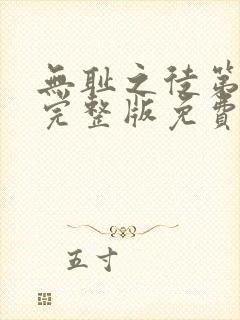 無耻之徒第
完整版免費
五寸